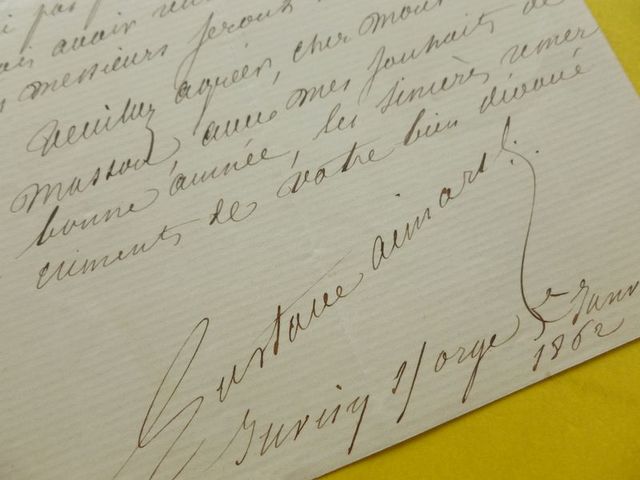 i pas
ais avoir
messieurs seront
Veuillez agréer, cher Mons
Masson, avec mes souhaits de
bonne année, les sincères remer
ciments de votre bien dévoué
Gustave Aimard
Juvisy s/ orge 2 Janv
1862